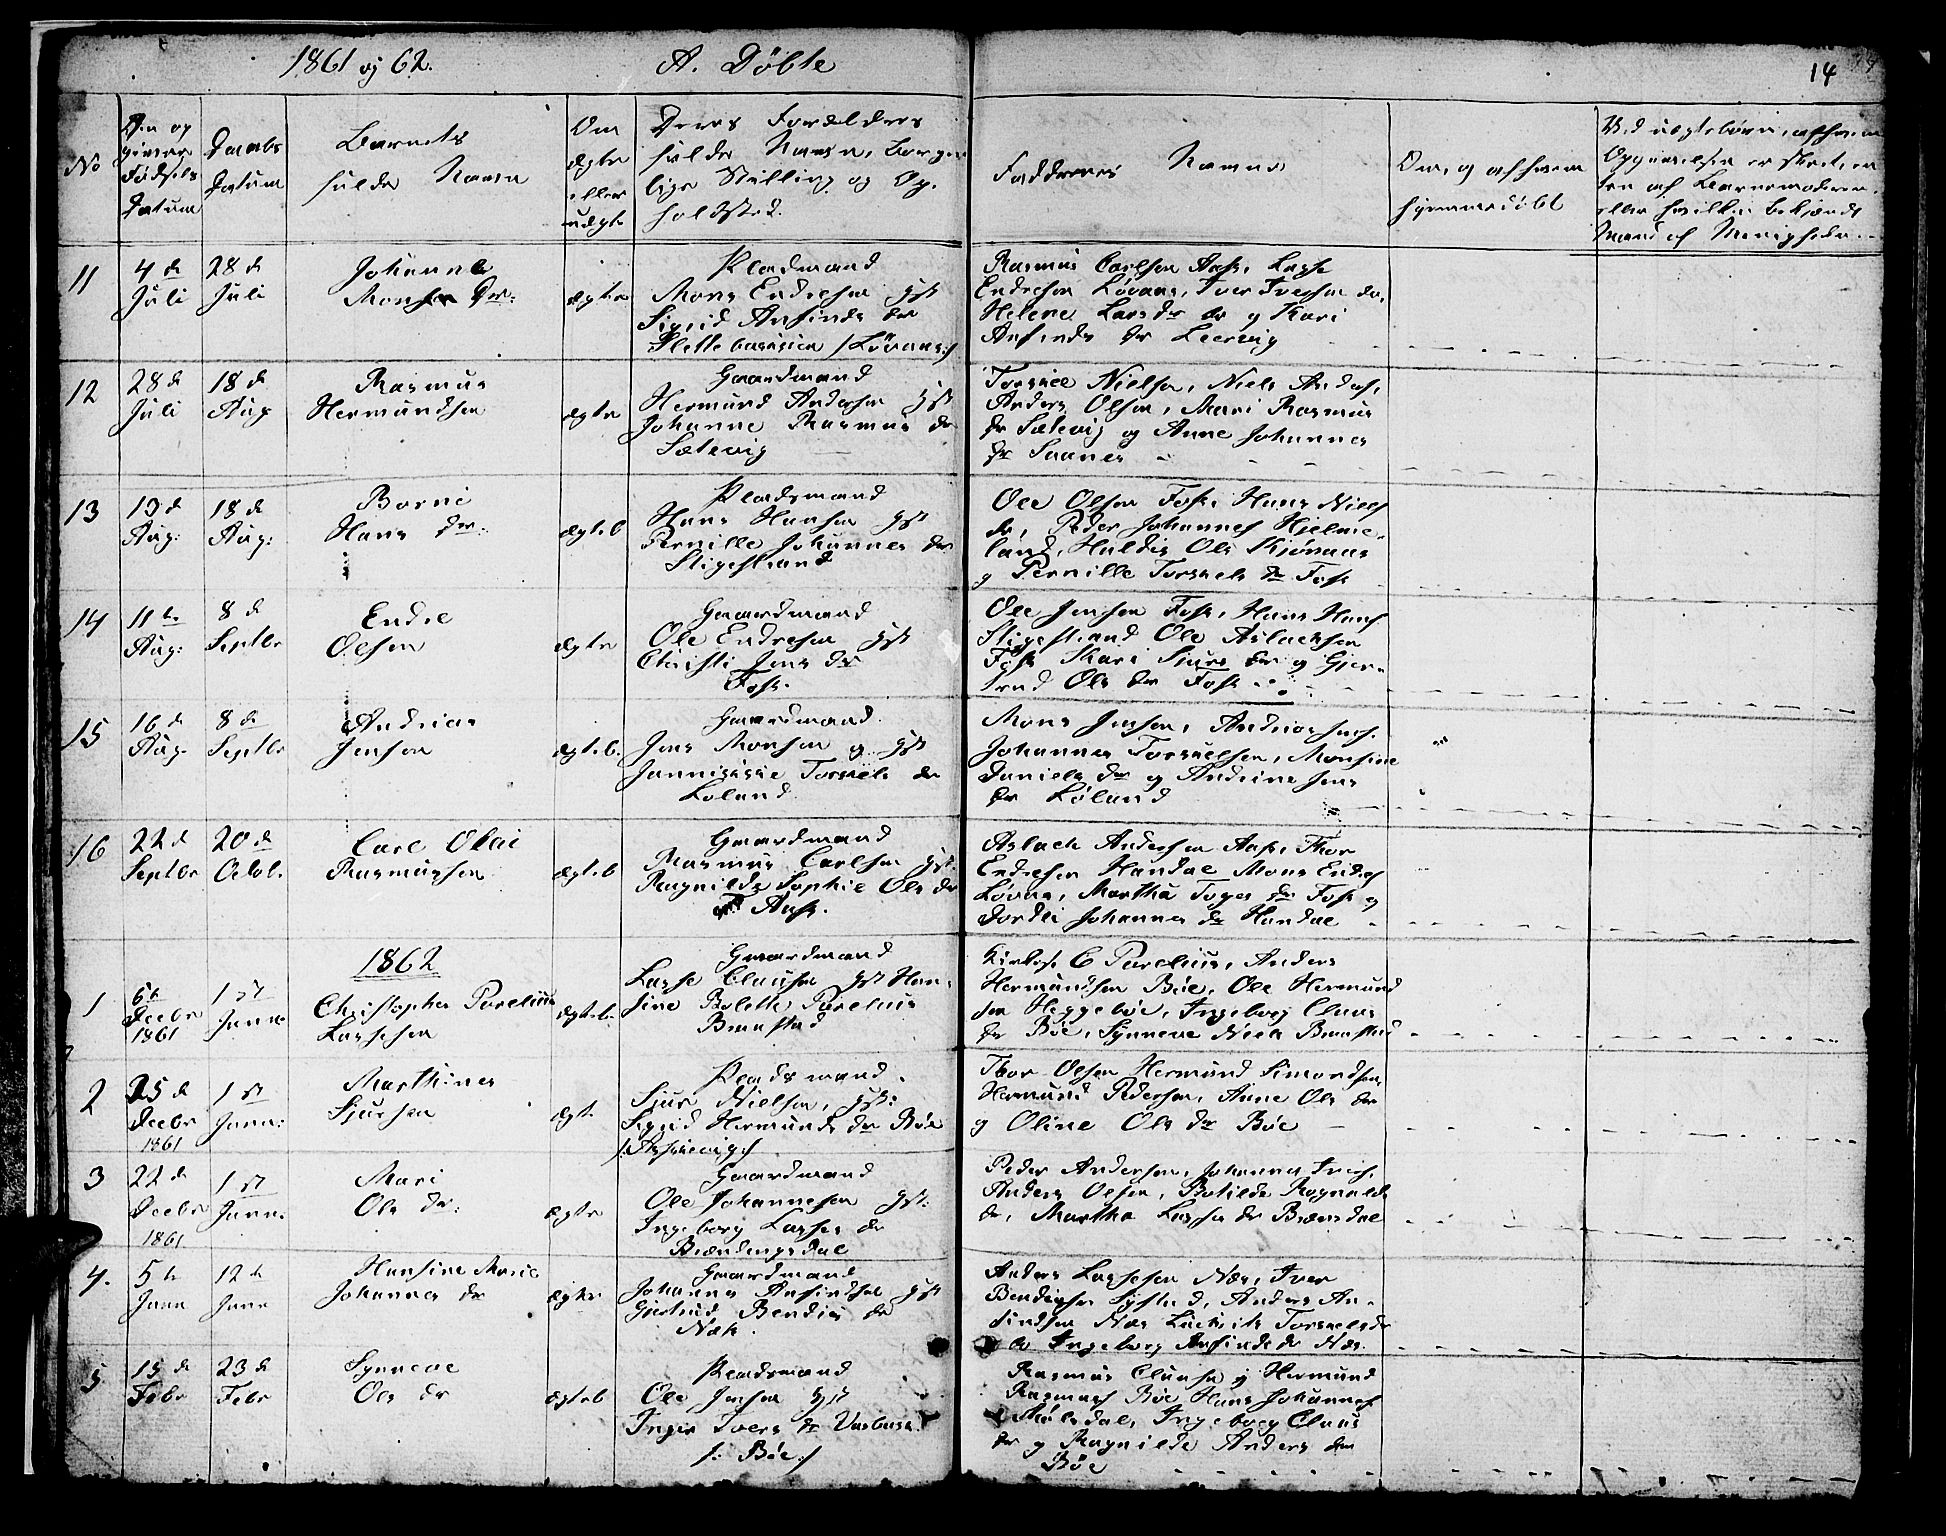 1861 og 62.
A. Døbte
14
No
Daabs
Datum
Barnets
fulde Navn
Om
ægte
eller
uægte
Deres Forældres
fulde Navn, Borger-
lige Stilling og Op-
holdsted.
Faddernes Navne
Om, og af hvem
hjemmedøbt
11
4de
Juli
28de
Juli
Johanne
Mons Dr:
ægte
Pladsmand
Mons Endresen Gst
Sigrid Ansinds dr
Rasmus Carlsen Aase, Lasse
Endresen Løvaas, Iver Iversen
Helene Lars dr og Kari
Ansinds dr Leervig
12
28de
Juli
18de
Aug
Rasmus
Hermundsen
ægte
Gaardmand
Hermund Andersen Gst
Johanne Rasmus dr
Sætevig
Torkiel Nielsen, Niels Anders,
Anders Olsen, Mari Rasmus
dr Sætevig og Anne Johannes
dr
13
13de
Aug:
18de
Aug:
Borni
Hans dr:
ægteb
Pladsmand
Hans Hansen Gst
Pernille Johannes dr
Stigestrand
Ole Olsen Foss, Hans Niels
Peder Johannes Hjelme-
land, Huldis Ols
og Pernille Torkels dr Foss
14
11te
Aug:
8de
Septbr
Endre
Olsen
ægte
Gaardmand
Ole Endresen Gst
Christi Jens dr
Foss.
Ole Jensen Foss, Hans Hans
Stigestrand Ole Aslachsen
Foss Kari Sjurs dr og Gjer-
trud Ols dr Foss
15
16de
Aug.
8de
Septbr
Andrias
Jensen
ægteb.
Gaardmand.
Jens Monsen og Gst
Torkels dr
Løland
Mons Jensen,
Johannes Torkielsen, Monsine
Daniels dr og Andrine Jens
dr Løland
16
22de
Septbr
20de
Octob.
Carl Olai
Rasmussen
ægteb
Gaardmand
Rasmus Carlsen Gst.
Ragnilde Sophie Ols dr
Aase.
Aslach Andersen Aase, Thor
Endresen Handal Mons Endres
Løvaas, Martha dr Foss og
Dordei Johannes dr Handal
1862
1
6te
Decbr
1861
1st
Janne
Christopher Parelius
Lassesen
ægteb.
Gaardmand
Lasse Clausen Gst Han-
sine Bolette Parelius
C Parelius, Anders
Hermundsen Bøe, Ole Hermund
sen Heggebøe, Ingeborg Claus
dr Bøe, Synneve
2
25de
Decbr
1861
1st
Jann:
Marthines
Sjursen
ægt.
Pladsmand.
Sjur Nielsen, Gst:
Sigrid Hermunds dr Bøe
Thor Olsen Hermund Simondsen,
Hermund Pedersen, Anne Ols dr
og Oline Ols dr Bøe
3
22de
Decbr
1861
1st
Jann.
Mari
Ols dr:
ægte
Gaardmand
Ole Johannesen Gst:
Ingeborg Lasses dr
Brændingsdal
Peder Andersen, Johannes
Anders Olsen, Botilde Ragnalds
dr, Martha Lasses dr
4.
5te
Jann
12te
Jann
Hansine Marie
Johannes dr
ægte
Gaardmand
Johannes Ansindsen Gst
Gjertrud Bendix dr
Anders Lassesen Næs, Iver
Bendixsen Systad, Anders An-
sindsen Næs Torkelsdr
og Ingeborg Ansinds dr Næs.
5
15de
Febr
23de
Febr
Synneve
Ols dr
ægteb
Pladsmand
Ole Jensen Gst
Inger Ivers dr
/: Bøe :/
Rasmus Clausen og Hermund
Rasmuss Bøe Hans Johannes
Ingeborg Claus
dr og Ragnilde Anders dr
Bøe